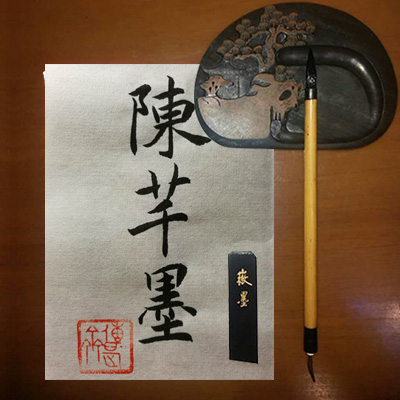 陳芊墨
嶽墨